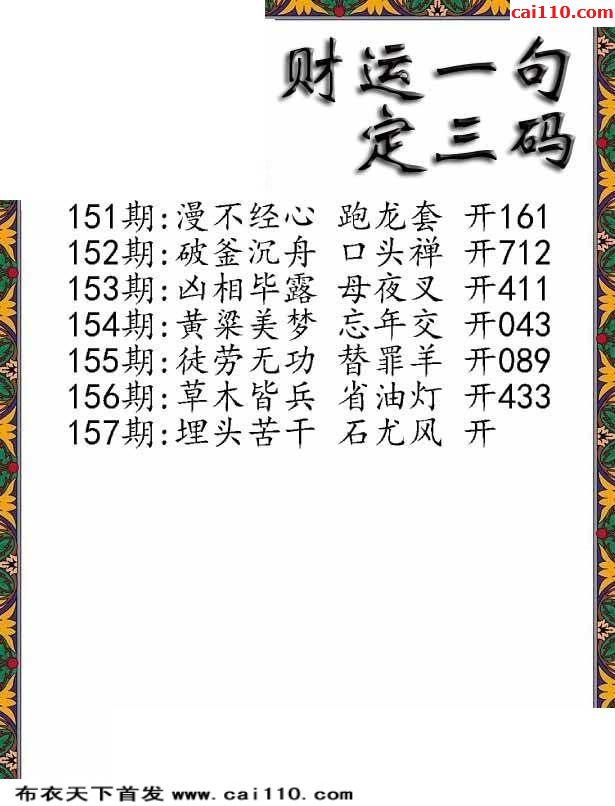 cai110.com
财运一句
定三码
151期:漫不经心 跑龙套 开161
152期:破釜沉舟 口头禅 开712
153期:凶相毕露 母夜叉 开411
154期:黄粱美梦 忘年交 开043
155期:徒劳无功 替罪羊 开089
156期:草木皆兵 省油灯 开433
157期:埋头苦干 石尤风 开
布衣天下首发 www.cai110.com